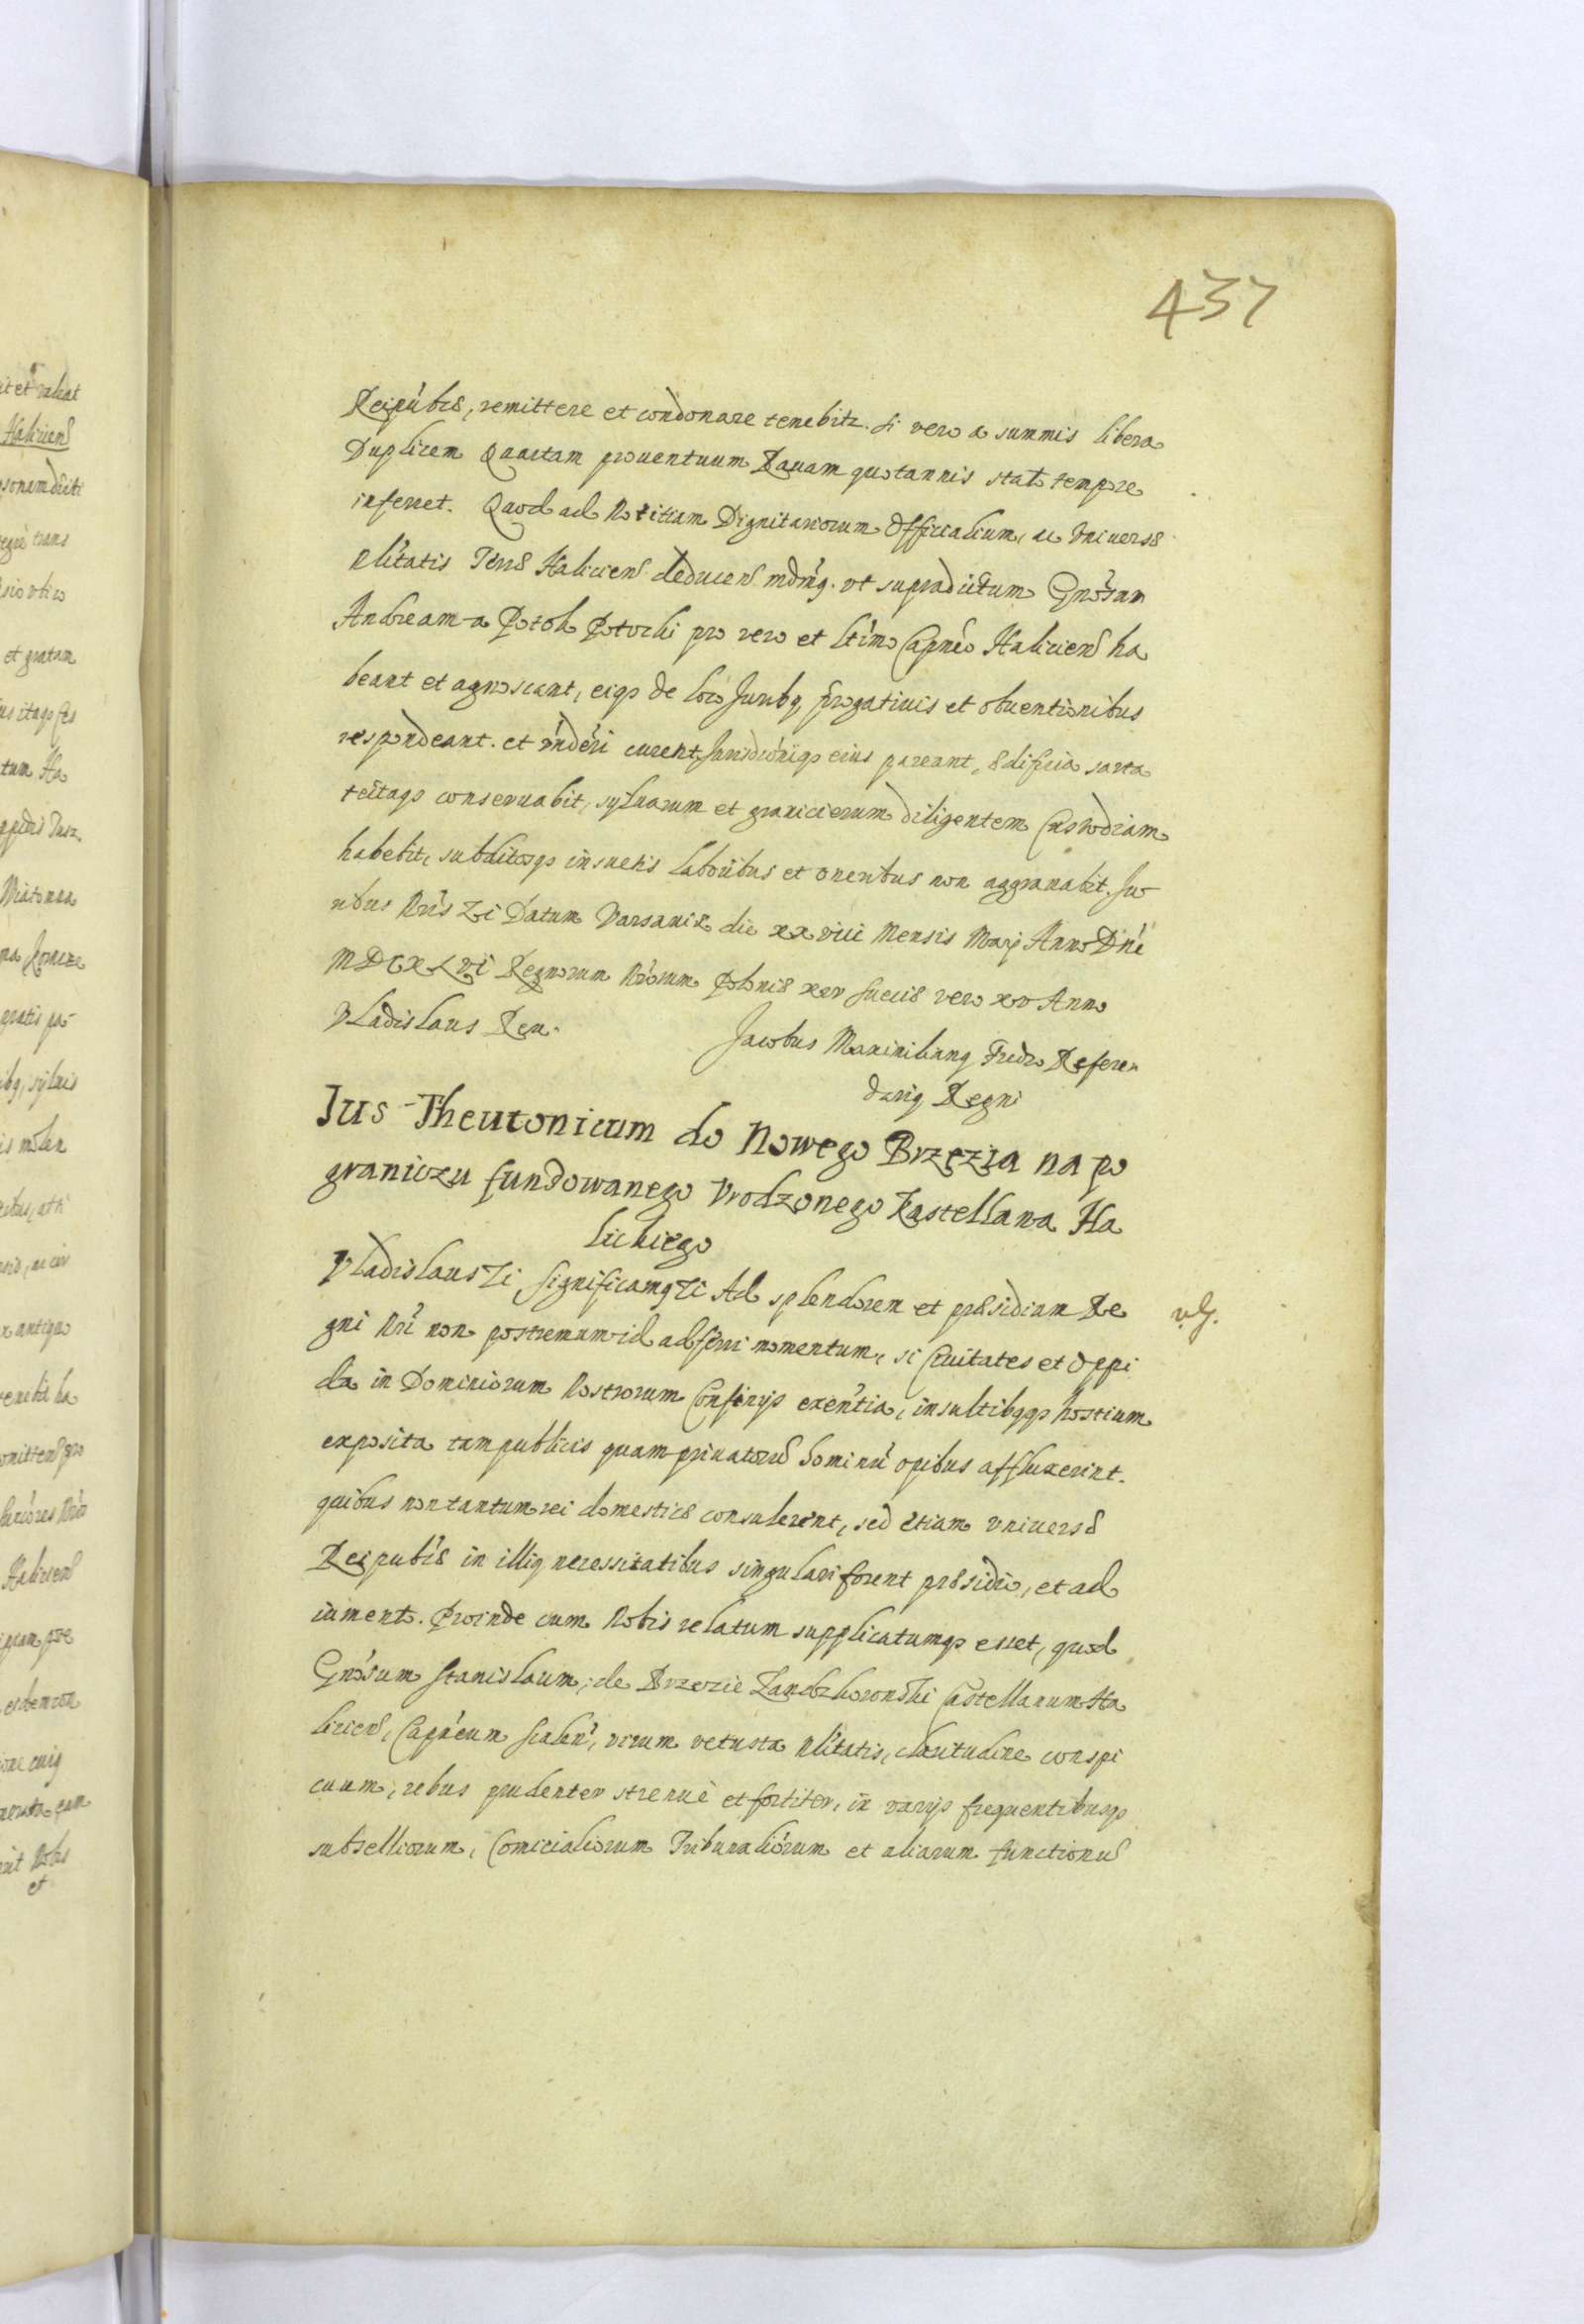 437
Reipúbcæ, remittere et condonare tenebitr. si vero a summis libera
Duplicem Quartam proventuum Ravam quotannis stato tempore
inferret. Quod ad Notitiam Dignitariorum Officialium, ac Vniversæ
Nlitatis Terræ Haliciens deducens mdmq. vt supradictum Gnósum
Andream a Potok Potocki pro vero et ltimo Capneo Haliciens ha
beant et agnoscant, eiq3 de loco Juribq prógativis et obventionibus
respondeant. et rńderi curent Jurisdictioniq3 eius pareant, ædificia sarta
tectaq3 conservabit, sylvarum et granicierum diligentem Custodiam
habebit, subditosq3 insuetis laboribus et oneribus non aggravabit. Ju-
ribus Nris Zi Datum Varsaviæ die xx viii Mensis Maÿ Anno Dni
MDCXLVI Regnorum Nrorum Poloniæ xiv Sueciæ vero xv Anno
Vladislaus Rex.
Jacobus Maximilianq Fredro Referen
dariq Regni
Jus Theutonicum do Nowego Brzezia na po
graniczu fundowanego Vrodzonego Kastellana Ha
lickiego
Vladislaus Zi Significamq Zi Ad splendorem et præsidium Re
gni Nri non postremum id adferri momentum, si Civitates et Oppi
da in Dominiorum Nostrorum Confinÿs exentia, insultibqq3 hostium
exposita tam publicis quam privatorũ hominũ opibus affluxerint.
quibus non tantum rei domesticæ consulerent, sed etiam vniversæ
Reipubcæ in illiq necessitatibus singulari forent præsidio, et ad
iumento. Proinde cum Nobis relatum supplicatumq3 esset, quod
Gnósum Stanislaum, de Brzezie Landzkoronski Castellanum Ha
liciens, Capneum Scalen, virum vetusta Nlitatis, claritudine conspi
cuum, rebus prudenter strenuè et fortiter, in varÿs frequentibusq3
subselliorum, Comicialiorum Tribunaliorum et aliarum functionũ